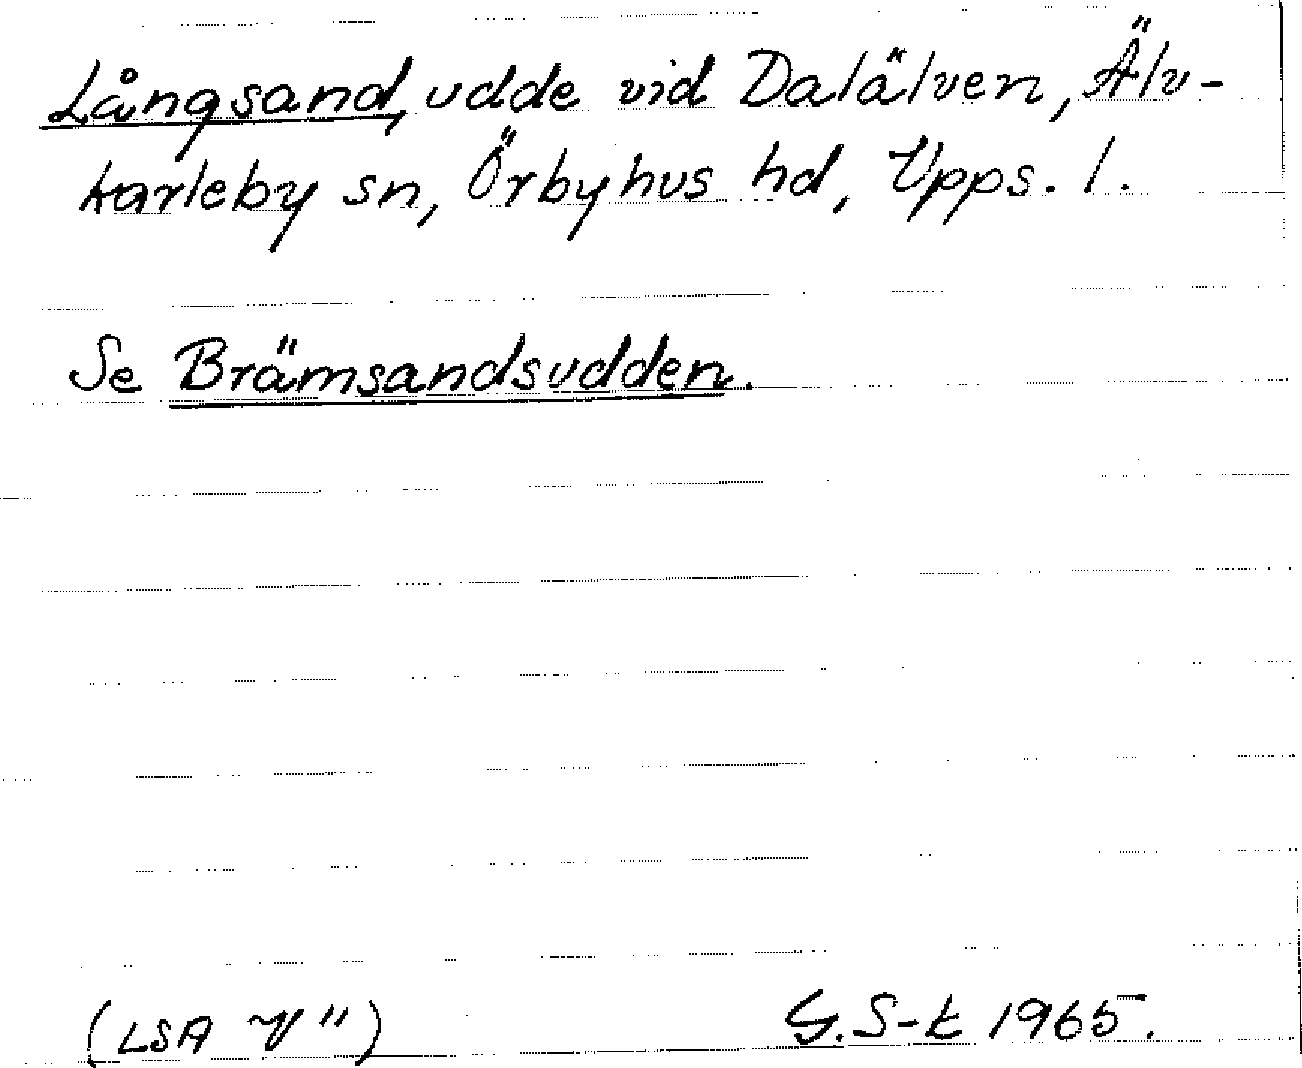 Långsand, udde vid Dalälven, Älv-
karleby sn, Örbyhus hd, Upps. l.
Se Brämsandsudden.
(LSA V")
G. S-t 1965.